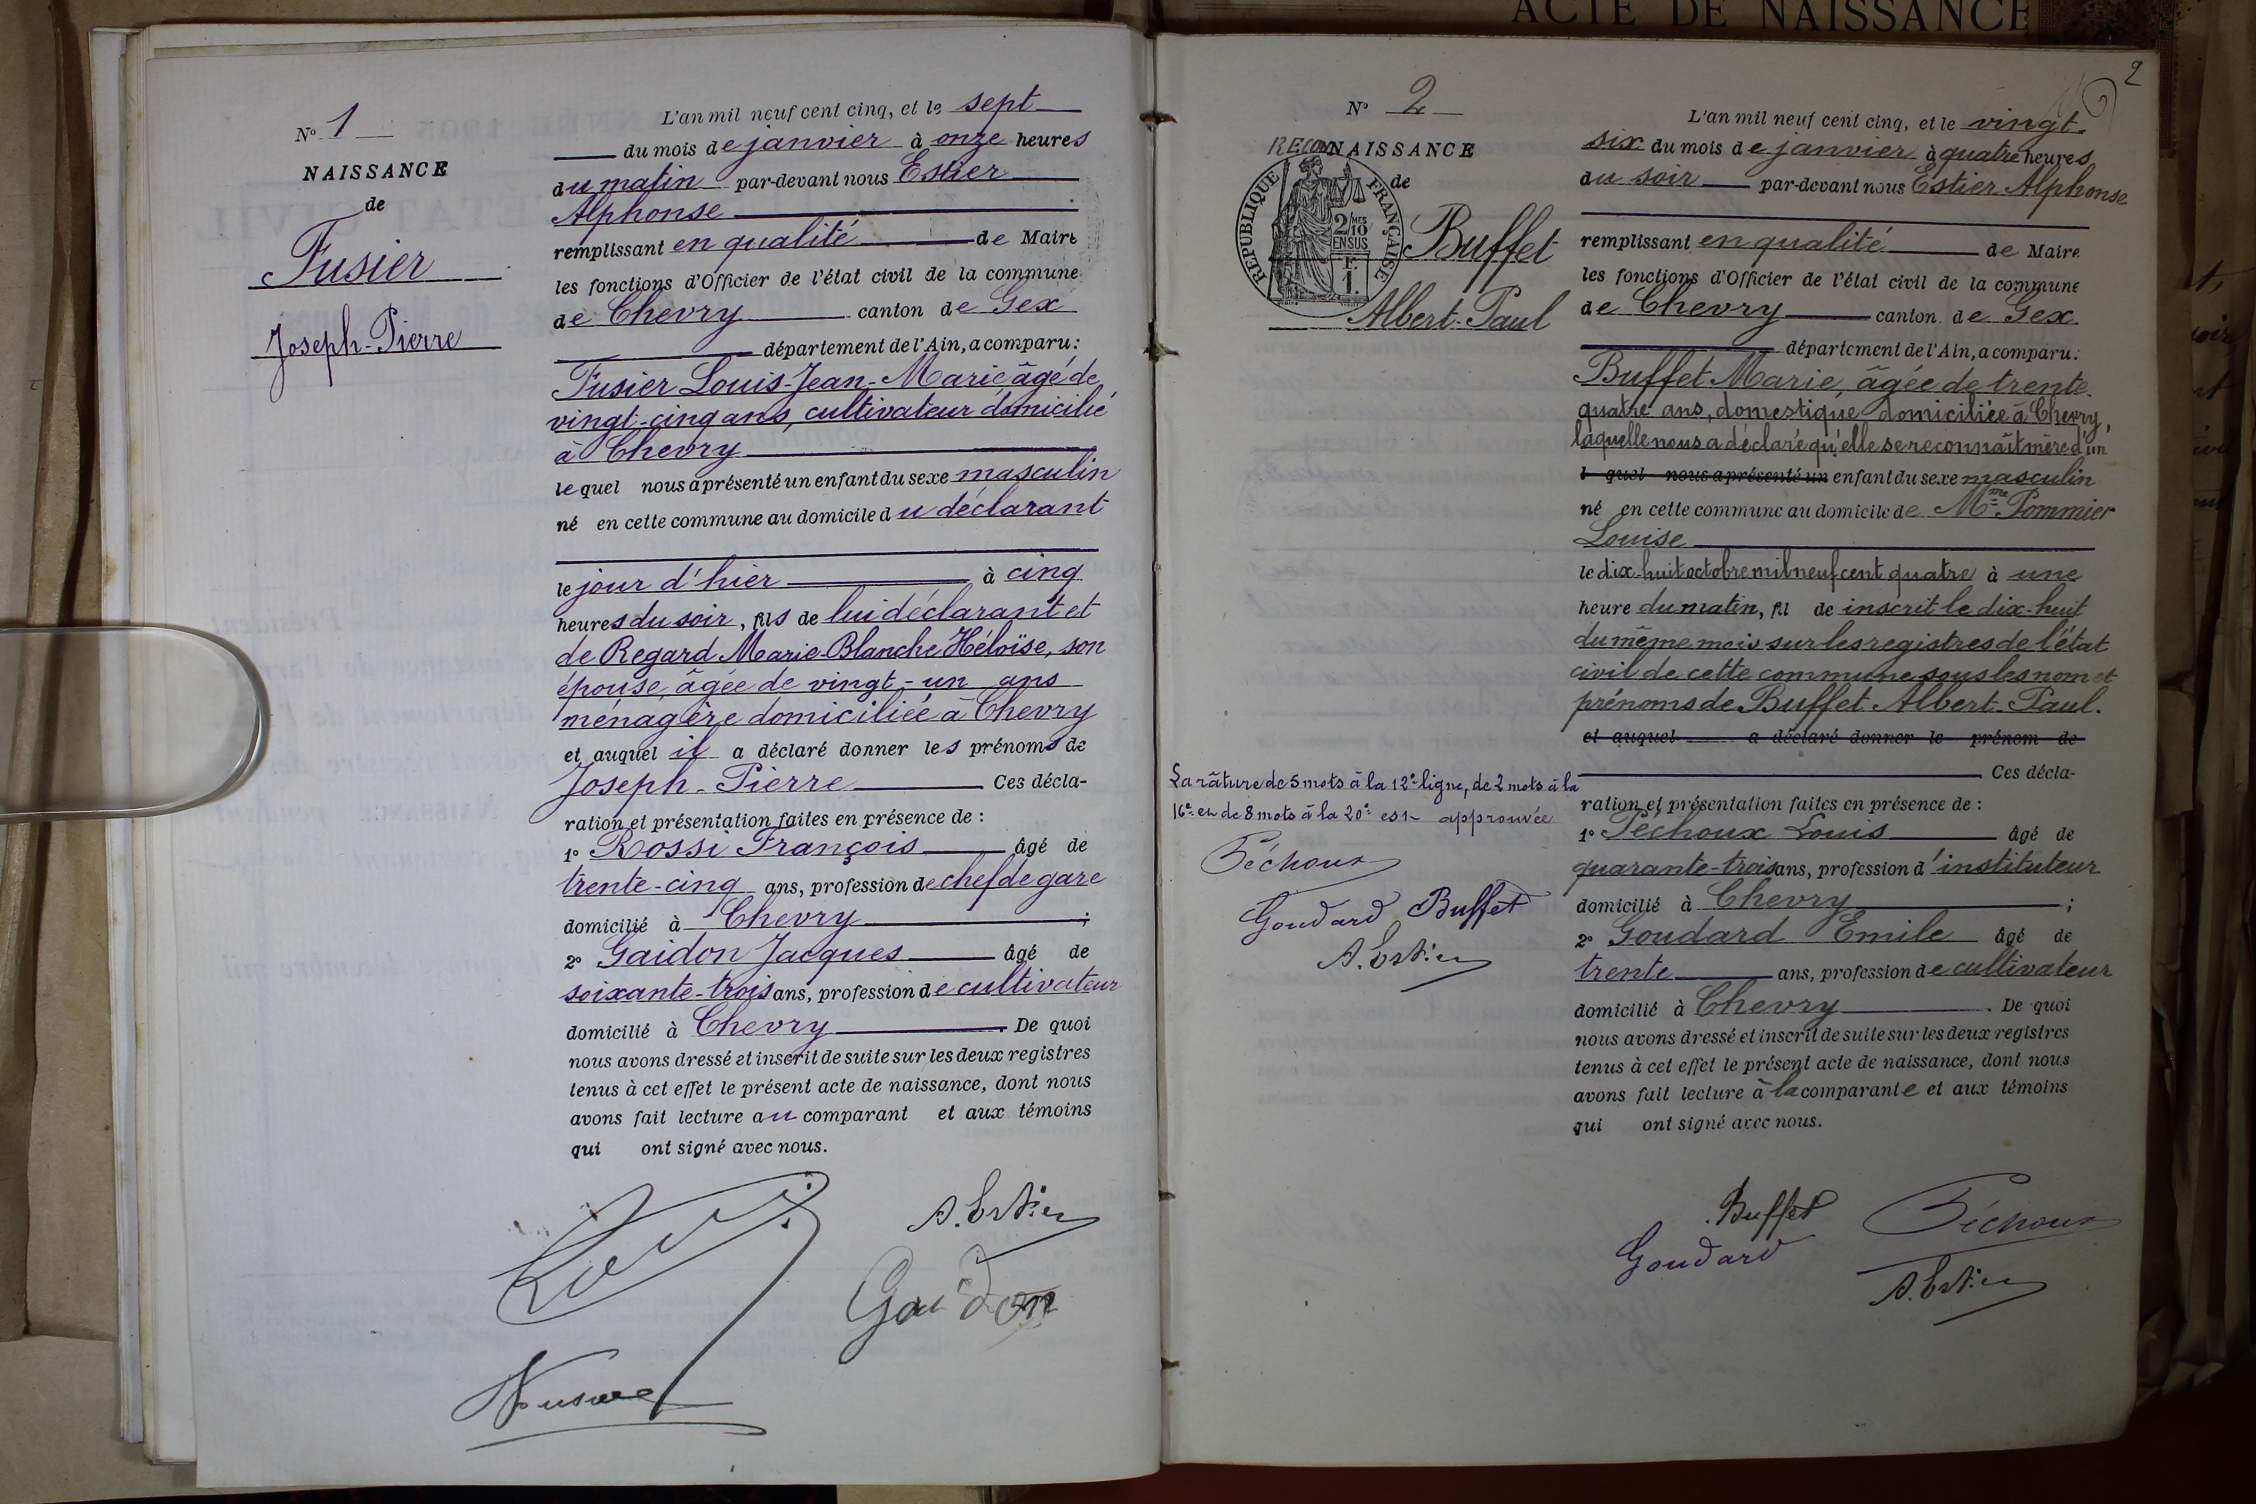 N° 1
NAISSANCE
de
Fusier
Joseph-Pierre
L'an mil neuf cent cinq, et le sept
du mois de janvier à onze heures
du matin par-devant nous Estier
Alphonse
remplissant en qualité de Maire
les fonctions d'Officier de l'état civil de la commune
de Chevry canton de Gex
département de l'Ain, a comparu:
Fusier Louis-Jean-Marie, âgé de
vingt-cinq ans, cultivateur domicilié
à Chevry
lequel nous a présenté un enfant du sexe masculin
né en cette commune au domicile du déclarant
le jour d'hier à cinq
heures du soir, fils de lui déclarant et
de Regard Marie-Blanche Héloïse, son
épouse, âgée de vingt-un ans
ménagère domiciliée à Chevry
et auquel il a déclaré donner les prénoms de
Joseph-Pierre Ces décla-
ration et présentation faites en présence de :
1° Rossi François âgé de
trente-cinq ans, profession de chef de gare
domicilié à Chevry ;
2° Gaidon Jacques âgé de
soixante-trois ans, profession de cultivateur
domicilié à Chevry . De quoi
nous avons dressé et inscrit de suite sur les deux registres
tenus à cet effet le présent acte de naissance, dont nous
avons fait lecture au comparant et aux témoins
qui ont signé avec nous.
A. Estier
Gaidon
ACTE DE NAISSANCE
2
N° 2
RECON NAISSANCE
de
RÉPUBLIQUE FRANÇAISE
2/10
EN SUS
F.
1.
Buffet
Albert-Paul
L'an mil neuf cent cinq, et le vingt-
six du mois de janvier à quatre heures
du soir par-devant nous Estier Alphonse
remplissant en qualité de Maire
les fonctions d'Officier de l'état civil de la commune
de Chevry canton de Gex
département de l'Ain, a comparu:
Buffet Marie, âgée de trente-
quatre ans, domestique domiciliée à Chevry,
laquelle nous a déclaré qu'elle se reconnaît mère d'un
l quel nous a présenté un enfant du sexe masculin
né en cette commune au domicile de Mme Pommier
Louise
le dix-huit octobre mil neuf cent quatre à une
heure du matin, fil de inscrit le dix-huit
du même mois sur les registres de l'état
civil de cette commune sous les nom et
prénoms de Buffet Albert-Paul.
et auquel a déclaré donner le prénom de
Ces décla-
ration et présentation faites en présence de :
1° Péchoux Louis âgé de
quarante-trois ans, profession d'instituteur
domicilié à Chevry ;
2° Goudard Emile âgé de
trente ans, profession de cultivateur
domicilié à Chevry . De quoi
nous avons dressé et inscrit de suite sur les deux registres
tenus à cet effet le présent acte de naissance, dont nous
avons fait lecture à la comparante et aux témoins
qui ont signé avec nous.
La râture de 5 mots à la 12e ligne, de 2 mots à la
16e et de 8 mots à la 20e est approuvée
Péchoux
Goudard Buffet
A. Estier
Buffet Péchoux
Goudard
A. Estier